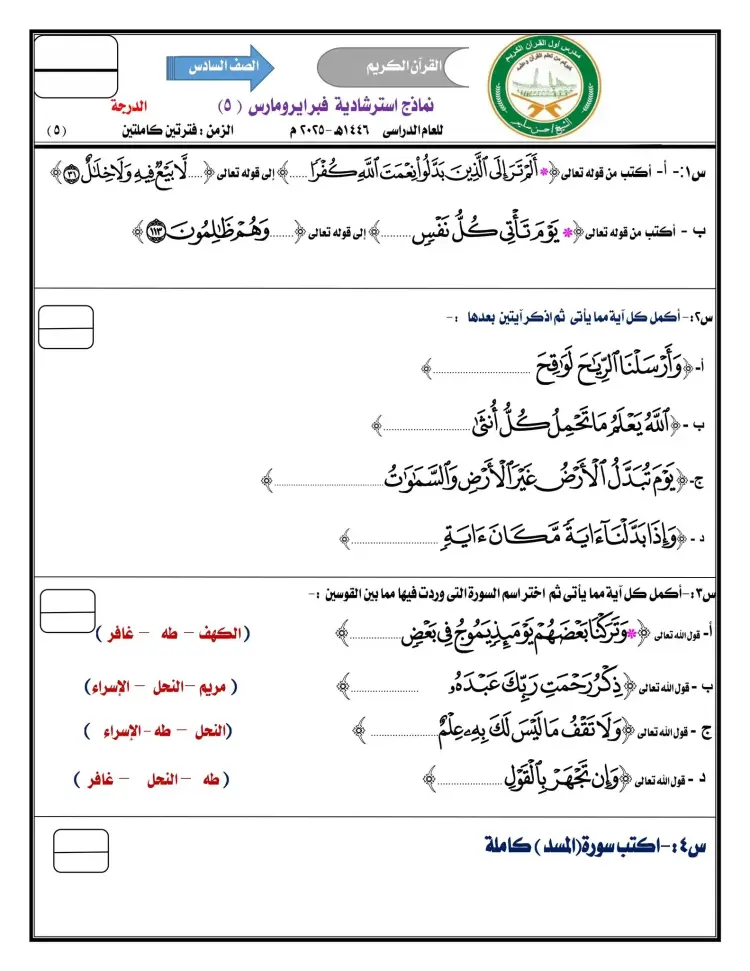 مدرس أول القرآن الكريم
خيركم من تعلم القرآن وعلمه
الشيخ / حسن سليم
القرآن الكريم
الصف السادس
نماذج استرشادية فبرايرومارس ( ٥ )
الدرجة
للعام الدراسى ١٤٤٦هـ -٢٠٢٥ م
الزمن : فترتين كاملتين
( ٥ )
س١:- أ- أكتب من قوله تعالى ﴿* أَلَمْ تَرَ إِلَى ٱلَّذِينَ بَدَّلُوا۟ نِعْمَتَ ٱللَّهِ كُفْرًا ......﴾ إلى قوله تعالى ﴿...... لَّا بَيْعٌ فِيهِ وَلَا خِلَٰلٌ ٣١﴾
ب - أكتب من قوله تعالى ﴿* يَوْمَ تَأْتِى كُلُّ نَفْسٍ ..........﴾ إلى قوله تعالى ﴿........ وَهُمْ ظَٰلِمُونَ ١١٣﴾
س٢:- أكمل كل آية مما يأتى ثم اذكر آيتين بعدها :-
أ- ﴿وَأَرْسَلْنَا ٱلرِّيَٰحَ لَوَٰقِحَ ..............................﴾
ب - ﴿ٱللَّهُ يَعْلَمُ مَا تَحْمِلُ كُلُّ أُنثَىٰ ..............................﴾
ج- ﴿يَوْمَ تُبَدَّلُ ٱلْأَرْضُ غَيْرَ ٱلْأَرْضِ وَٱلسَّمَٰوَٰتُ ..............................﴾
د - ﴿وَإِذَا بَدَّلْنَآ ءَايَةً مَّكَانَ ءَايَةٍ ..............................﴾
س٣:-أكمل كل آية مما يأتى ثم اختر اسم السورة التى وردت فيها مما بين القوسين :-
أ- قول الله تعالى ﴿* وَتَرَكْنَا بَعْضَهُمْ يَوْمَئِذٍ يَمُوجُ فِى بَعْضٍ ....................﴾ ( الكهف – طه – غافر )
ب - قول الله تعالى ﴿ذِكْرُ رَحْمَتِ رَبِّكَ عَبْدَهُۥ ....................﴾ ( مريم –النحل – الإسراء)
ج - قول الله تعالى ﴿وَلَا تَقْفُ مَا لَيْسَ لَكَ بِهِۦ عِلْمٌ ....................﴾ (النحل – طه - الإسراء )
د - قول الله تعالى ﴿وَإِن تَجْهَرْ بِٱلْقَوْلِ ....................﴾ ( طه – النحل – غافر )
س٤:-اكتب سورة(المسد ) كاملة